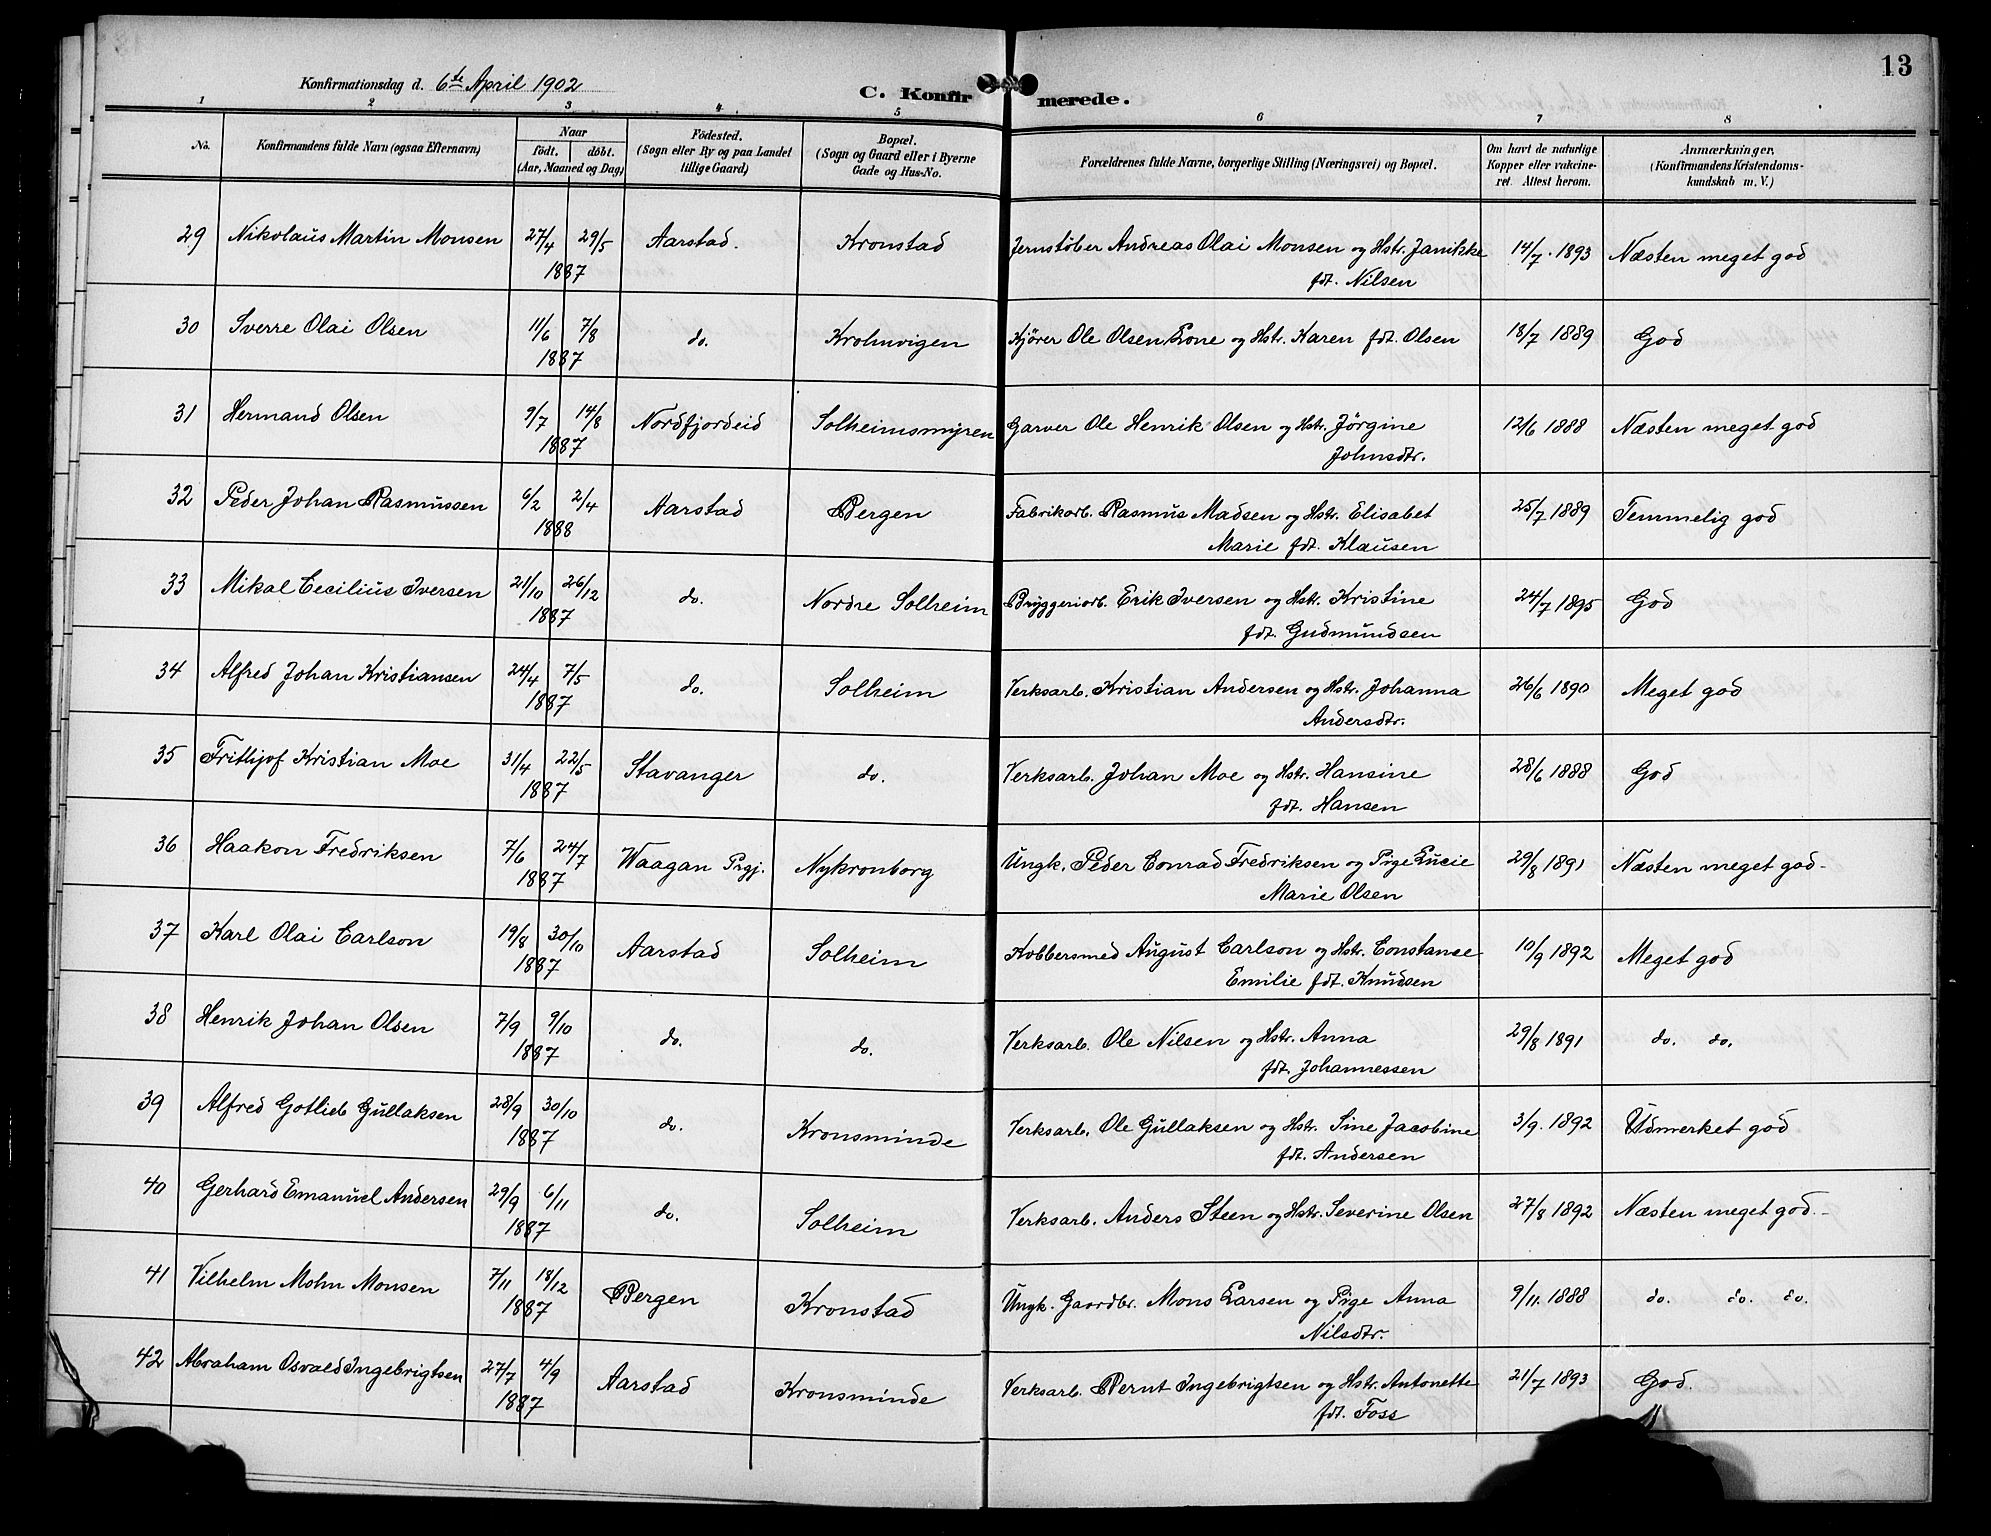 13
Konfirmationsdag d. 6te April 1902
C. Konfirmerede.
1 2 3 4 5 6 7 8
No. | Konfirmandens fulde Navn (ogsaa Efternavn) | Naar födt. döbt. (Aar, Maaned og Dag) | Födested. (Sogn eller By og paa Landet tillige Gaard) | Bopæl. (Sogn og Gaard eller i Byerne Gade og Hus-No. | Forældrenes fulde Navne, borgerlige Stilling (Næringsvei) og Bopæl. | Om havt de naturlige Kopper eller vakcineret. Attest herom. | Anmærkninger, (Konfirmandens Kristendomskundskab m. V.)
29 | Nikolaus Martin Monsen | 27/4 29/5 1887 | Aarstad. | Kronstad | Jernstøber Andreas Olai Monsen og Hstr. Janikke fdt. Nilsen | 14/7 1893 | Næsten meget god
30 | Sverre Olai Olsen | 11/6 7/8 1887 | do. | Krohnvigen | Kjører Ole Olsen Lone og Hstr. Karen fdt. Olsen | 18/7 1889 | God
31 | Hermand Olsen | 9/7 14/8 1887 | Nordfjordeid | Solheimsmyren | Garver Ole Henrik Olsen og Hstr. Jörgine Johnsdtr. | 12/6 1888 | Næsten meget god
32 | Peder Johan Rasmussen | 6/2 2/4 1888 | Aarstad | Bergen | Fabrikarb. Rasmus Madsen og Hstr. Elisabet Marie fdt. Klausen | 25/7 1889 | Temmelig god
33 | Mikal Cecilius Iversen | 21/10 26/12 1887 | do. | Nordre Solheim | Bryggeriarb. Erik Iversen og Hstr. Kristine fdt. Gudmundsen | 24/7 1895 | God
34 | Alfred Johan Kristiansen | 24/4 7/5 1887 | do. | Solheim | Verksarb. Kristian Andersen og Hstr. Johanna Andersdtr. | 26/6 1890 | Meget god
35 | Frithjof Kristian Moe | 31/4 22/5 1887 | Stavanger | do. | Verksarb. Johan Moe og Hstr. Hansine fdt. Hansen | 28/6 1888 | God
36 | Haakon Fredriksen | 7/6 24/7 1887 | Waagan Prgj. | Nykronborg | Ungk. Peder Conrad Fredriksen og Pige Lucie Marie Olsen | 29/8 1891 | Næsten meget god
37 | Karl Olai Carlson | 19/8 30/10 1887 | Aarstad | Solheim | Kobbersmed August Carlson og Hstr. Constanse Emilie fdt. Knudsen | 10/9 1892 | Meget god
38 | Henrik Johan Olsen | 7/9 9/10 1887 | do. | do. | Verksarb. Ole Nilsen og Hstr. Anna fdt. Johannessen | 29/8 1891 | do. do.
39 | Alfred Gotlieb Gullaksen | 28/9 30/10 1887 | do. | Kronsminde | Verksarb. Ole Gullaksen og Hstr. Sine Jacobine fdt. Andersen | 3/9. 1892 | Udmerket god
40 | Gerhard Emanuel Andersen | 29/9 6/11 1887 | do. | Solheim | Verksarb. Anders Steen og Hstr. Severine Olsen | 27/8 1892 | Næsten meget god.
41 | Vilhelm Mohn Monsen | 7/11 18/12 1887 | Bergen | Kronstad | Ungk. Gaardbr. Mons Larsen og Pige Anna Nilsdtr. | 9/11. 1888 | do. do. do.
42 | Abraham Osvald Ingebrigtsen | 27/7 4/9 1887 | Aarstad | Kronsminde | Verksarb. Bernt Ingebrigtsen og Hstr. Antonette fdt. Foss | 21/7 1893 | God.